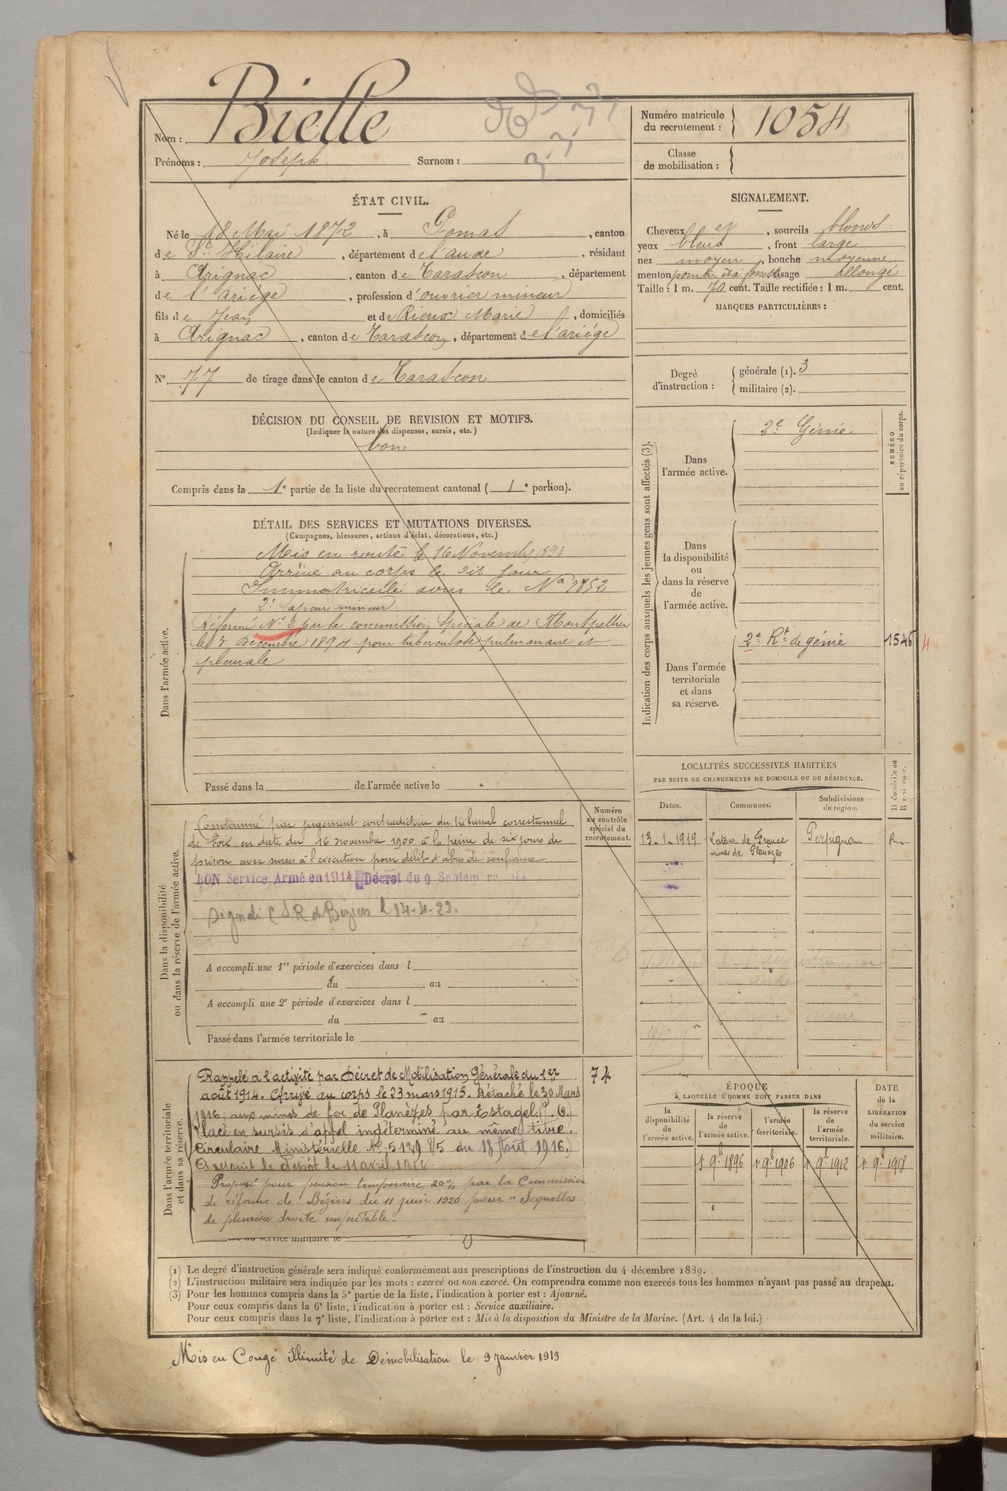 Nom : Bielle
Prénoms : Joseph Surnom :
Numéro matricule du recrutement : 1054
Classe de mobilisation :
ÉTAT CIVIL.
Né le 18 Mai 1872, à Gomas, canton
de St Hilaire, département de l'aude, résidant
à Arignac, canton de Tarascon, département
de l'ariège, profession d'ouvrier mineur
fils de Jean et de Rieux Marie, domiciliés
à Arignac, canton de Tarascon, département de l'ariége
N° 77 de tirage dans le canton de Tarascon
SIGNALEMENT.
Cheveux et, sourcils blonds
yeux bleus, front large
nez moyen, bouche moyenne
menton visage allongé
Taille : 1 m. 70 cent. Taille rectifiée : 1 m. cent.
MARQUES PARTICULIÈRES :
Degré d'instruction : générale (1). 3
militaire (2).
DÉCISION DU CONSEIL DE REVISION ET MOTIFS.
(Indiquer la nature des dispenses, sursis, etc.)
bon
Compris dans la 1e partie de la liste du recrutement cantonal ( 1e portion).
DÉTAIL DES SERVICES ET MUTATIONS DIVERSES.
(Campagnes, blessures, actions d'éclat, décorations, etc.)
Dans l'armée active.
Mis en route le 16 Novembre 1893
Arrivé au corps le dit jour
Immatriculé sous le N°
2e sapeur mineur
Réformé N° 2 par la commission Spéciale de Montpellier
le 3 Décembre 1894 pour tuberculose pulmonaire et
pleurale
Passé dans la de l'armée active le
Indication des corps auxquels les jeunes gens sont affectés (3).
NUMÉRO au répertoire du corps.
Dans l'armée active.
2e Génie
Dans la disponibilité ou dans la réserve de l'armée active.
Dans l'armée territoriale et dans sa réserve.
2e Rt de génie 1545
4
LOCALITÉS SUCCESSIVES HABITÉES
PAR SUITE DE CHANGEMENTS DE DOMICILE OU DE RÉSIDENCE.
Dates. Communes. Subdivisions de région. D. domicile ou R. résidence.
13-1-1919 Latour de France Perpignan R.
mines de Planèzes
Dans la disponibilité ou dans la réserve de l'armée active.
Numéro au contrôle spécial du recrutement.
Condamné par jugement contradictoire du tribunal correctionnel
de Foix en date du 16 novembre 1900 à la peine de six jours de
prison avec sursis à l'exécution pour délit d'abus de confiance
BON Service Armé en 1914 Décret du 9 Septembre
Signalé C S R de Béziers l 14-4-22.
A accompli une 1re période d'exercices dans l
du au
A accompli une 2e période d'exercices dans l
du au
Passé dans l'armée territoriale le
Dans l'armée territoriale et dans sa réserve.
74
Rappelé à l'activité par Décret de Mobilisation Générale du 1er
août 1914. Arrivé au corps le 23 mars 1915. Détaché le 30 Mars
1916, aux mines de fer de Planèzes par Estagel (P. O.)
Placé en sursis d'appel indéterminé au même titre.
Circulaire Ministérielle N° 5179 5/5 du 18 Août 1916.
rejoint le dépôt le 11 avril
Proposé pour pension temporaire 20% par la Commission
de réforme de Béziers du 11 juin 1920 pour "Sequelles
de pleurésie droite imputable.
du service militaire le
ÉPOQUE
A LAQUELLE L'HOMME DOIT PASSER DANS
la disponibilité de l'armée active. la réserve de l'armée active. l'armée territoriale. la réserve de l'armée territoriale. DATE de la LIBÉRATION du service militaire.
1 9bre 1896 1 9bre 1906 1 9bre 1912 1 9bre 1918
(1) Le degré d'instruction générale sera indiqué conformément aux prescriptions de l'instruction du 4 décembre 1889.
(2) L'instruction militaire sera indiquée par les mots : exercé ou non exercé. On comprendra comme non exercés tous les hommes n'ayant pas passé au drapeau.
(3) Pour les hommes compris dans la 5e partie de la liste, l'indication à porter est : Ajourné.
Pour ceux compris dans la 6e liste, l'indication à porter est : Service auxiliaire.
Pour ceux compris dans la 7e liste, l'indication à porter est : Mis à la disposition du Ministre de la Marine. (Art. 4 de la loi.)
Mis en Congé illimité de Démobilisation le 9 janvier 1919